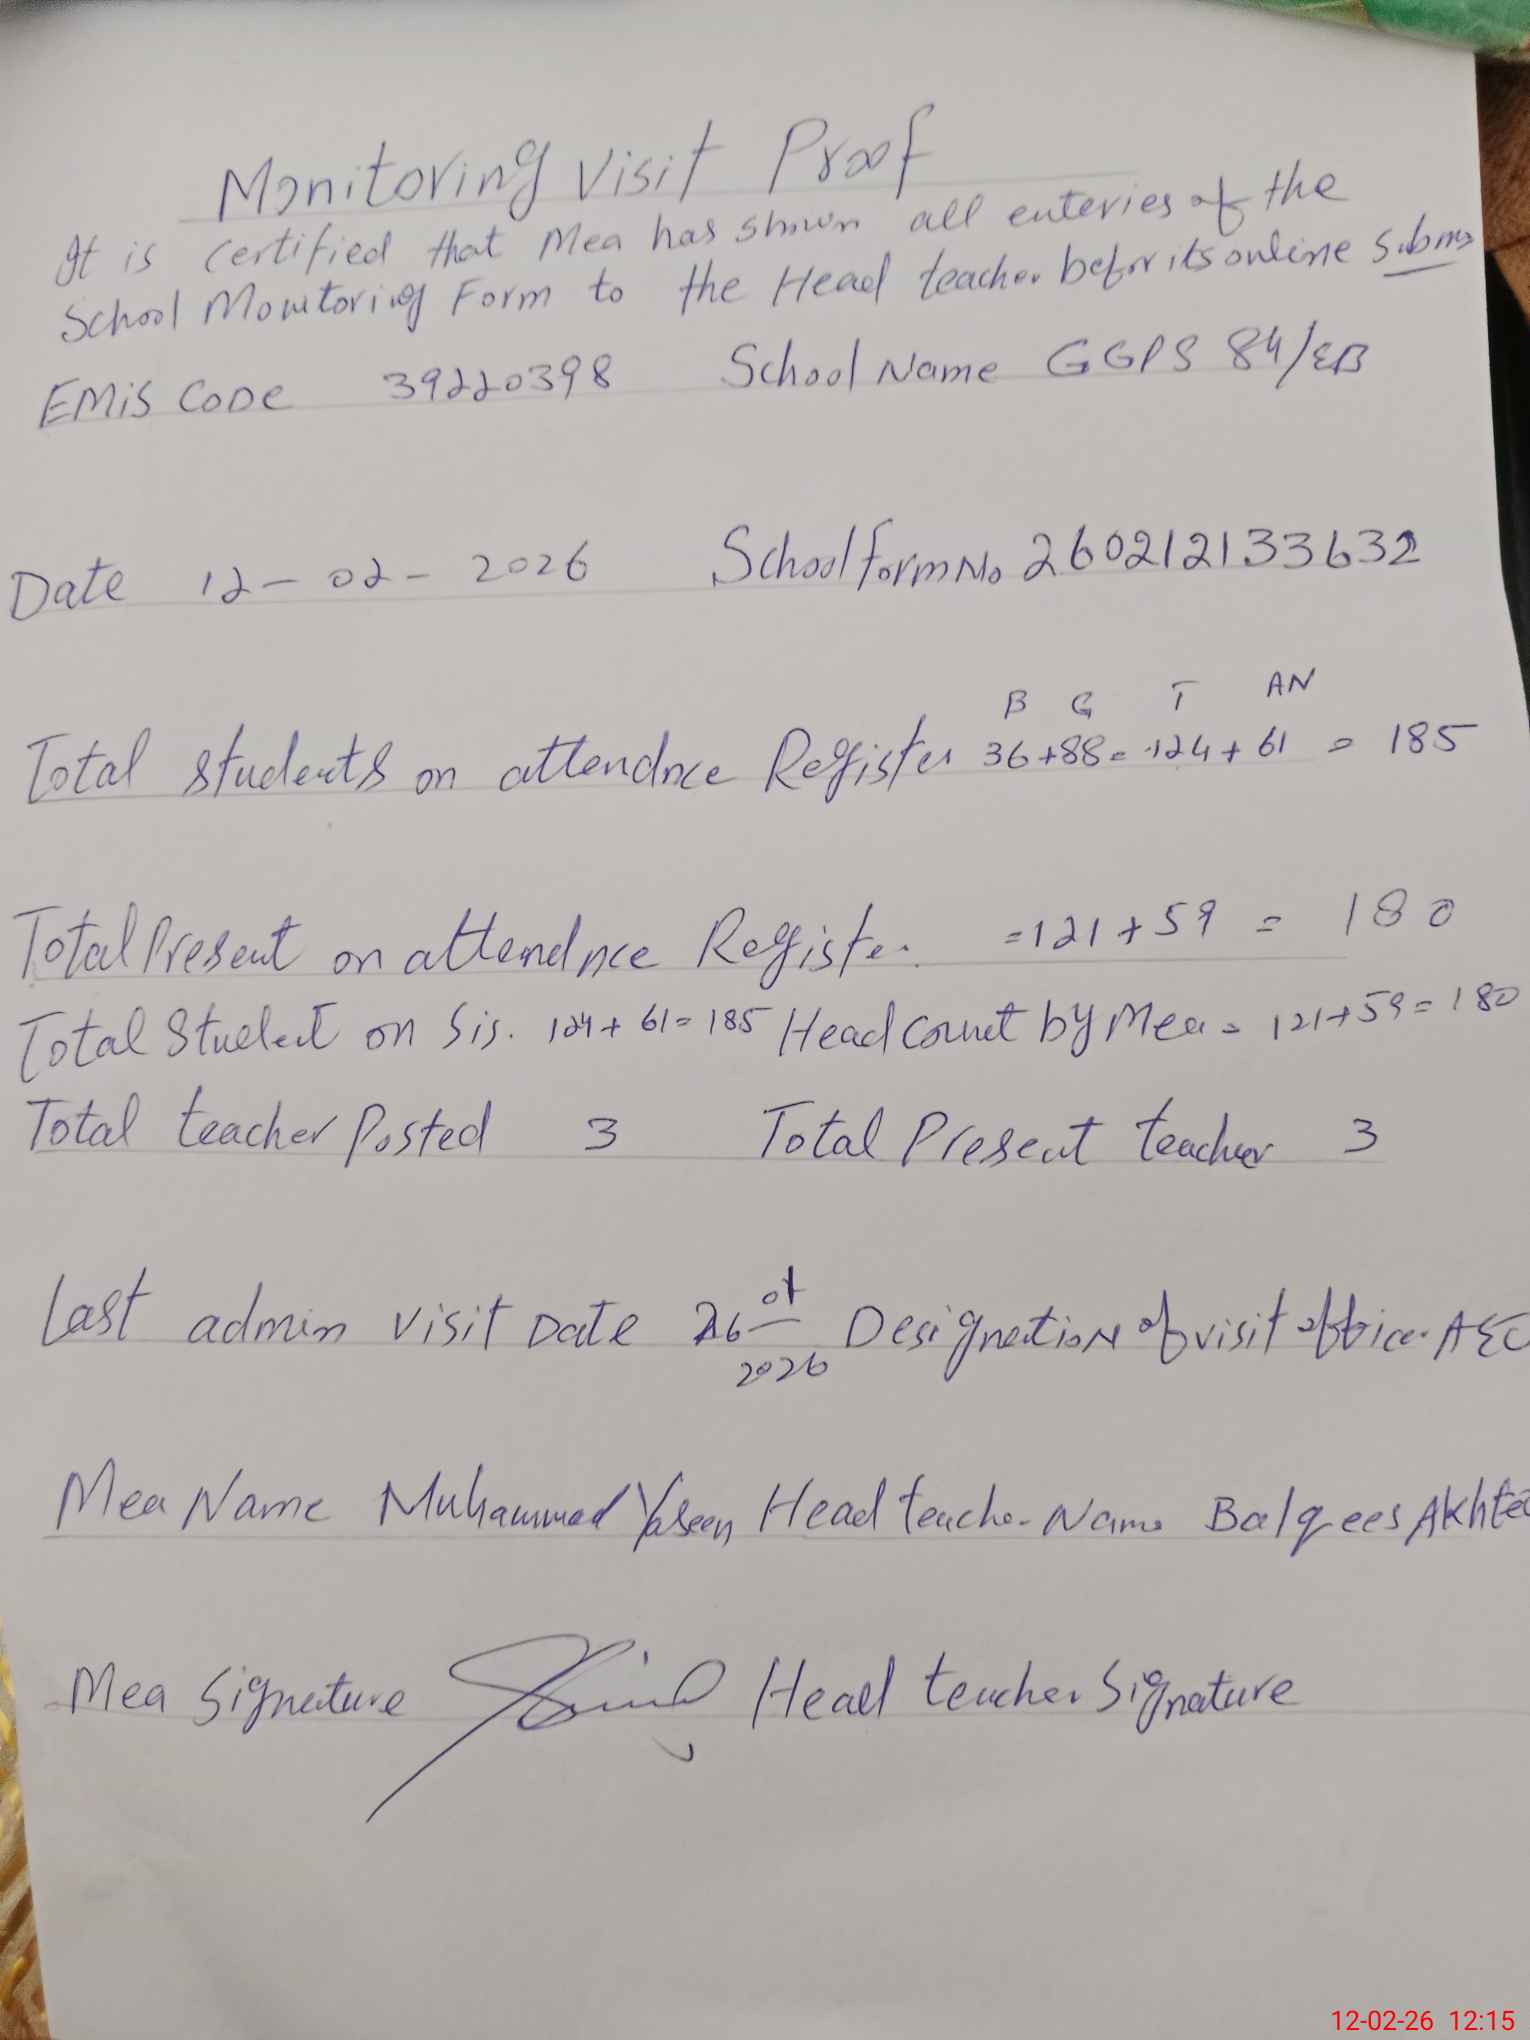 Monitoring Visit Proof
It is certified that Mea has shown all enteries of the
School Monitoring Form to the Head teacher befor its online Subms
EMIS CODE 39220398 School Name GGPS 84/EB
Date 12-02-2026 School Form No 260212133632
B G T AN
Total students on attendnce Register 36+88=124+61 = 185
Total Present on attendnce Register. =121+59 = 180
Total Student on Sis. 124+61=185 Head Count by Mea = 121+59=180
Total teacher Posted 3 Total Present teacher 3
Last admin visit Date 26 01 2026 Designation of visit officer AEO
Mea Name Muhammad Yaseen Head teacher Name Balqees Akhter
Mea Signature Head teacher Signature
12-02-26 12:15